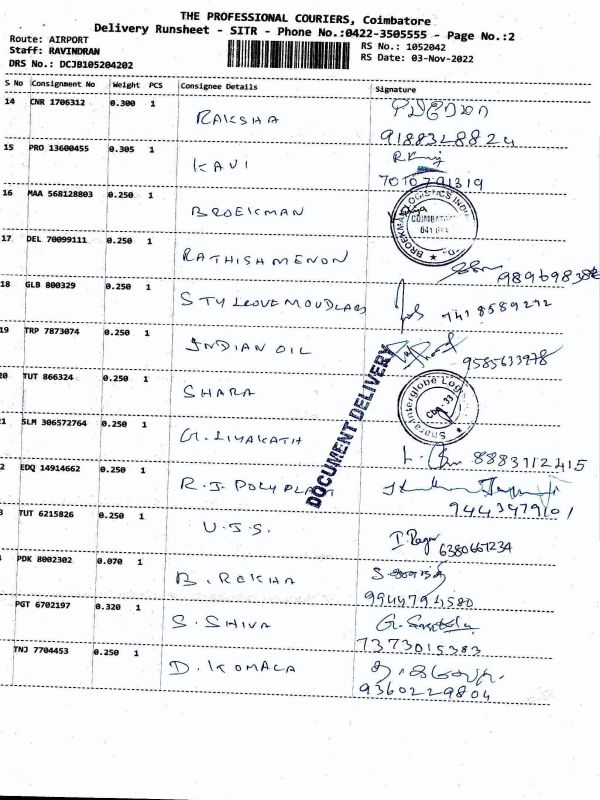 THE PROFESSIONAL COURIERS, Coimbatore
Delivery Runsheet - SITR - Phone No.:0422-3505555 - Page No.:2
Route: AIRPORT
Staff: RAVINDRAN
DRS No.: DCJB105204202
RS No.: 1052042
RS Date: 03-Nov-2022
S No Consignment No Weight PCS Consignee Details Signature
14 CNR 1706312 0.300 1 RAKSHA
9188328824
15 PRO 13600455 0.305 1 KAVI
7010791319
16 MAA 568128803 0.250 1 BROEKMAN
BROEKMAN LOGISTICS INDIA
COIMBATORE
17 DEL 70099111 0.250 1 RATHISH MENON
18 GLB 800329 0.250 1
9418589272
19 TRP 7873074 0.250 1 INDIAN OIL
9585633978
DOCUMENT DELIVERY
20 TUT 866324 0.250 1 SHARA
Shara Interglobe
21 SLM 306572764 0.250 1 G. LIYAKATH
8883112415
2 EDQ 14914662 0.250 1 R.J. POLY PLAST
9443479101
3 TUT 6215826 0.250 1 U.S.S.
6380661234
PDK 8002302 0.070 1 B. REKHA
9944794580
PGT 6702197 0.320 1 S. SHIVA
7373015383
TNJ 7704453 0.250 1 D. KOMALA
9360229804